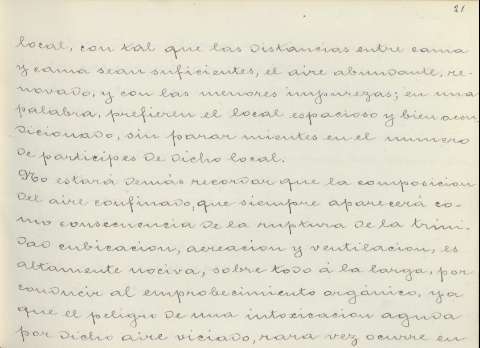 21
local, con tal que las distancias entre cama
y cama sean suficientes, el aire abundante, re-
novado, y con las menores impurezas; en una
palabra, prefieren el local espacioso y bien acon
dicionado, sin parar mientes en el numero
de participes de dicho local.
No estará demás recordar que la composicion
del aire confinado, que siempre aparecerá co-
mo consecuencia de la ruptura de la trini-
dad cubicacion, aereacion y ventilacion, es
altamente nociva, sobre todo á la larga, por
conducir al emprobecimiento orgánico, ya
que el peligro de una intoxicacion aguda
por dicho aire viciado, rara vez ocurre en